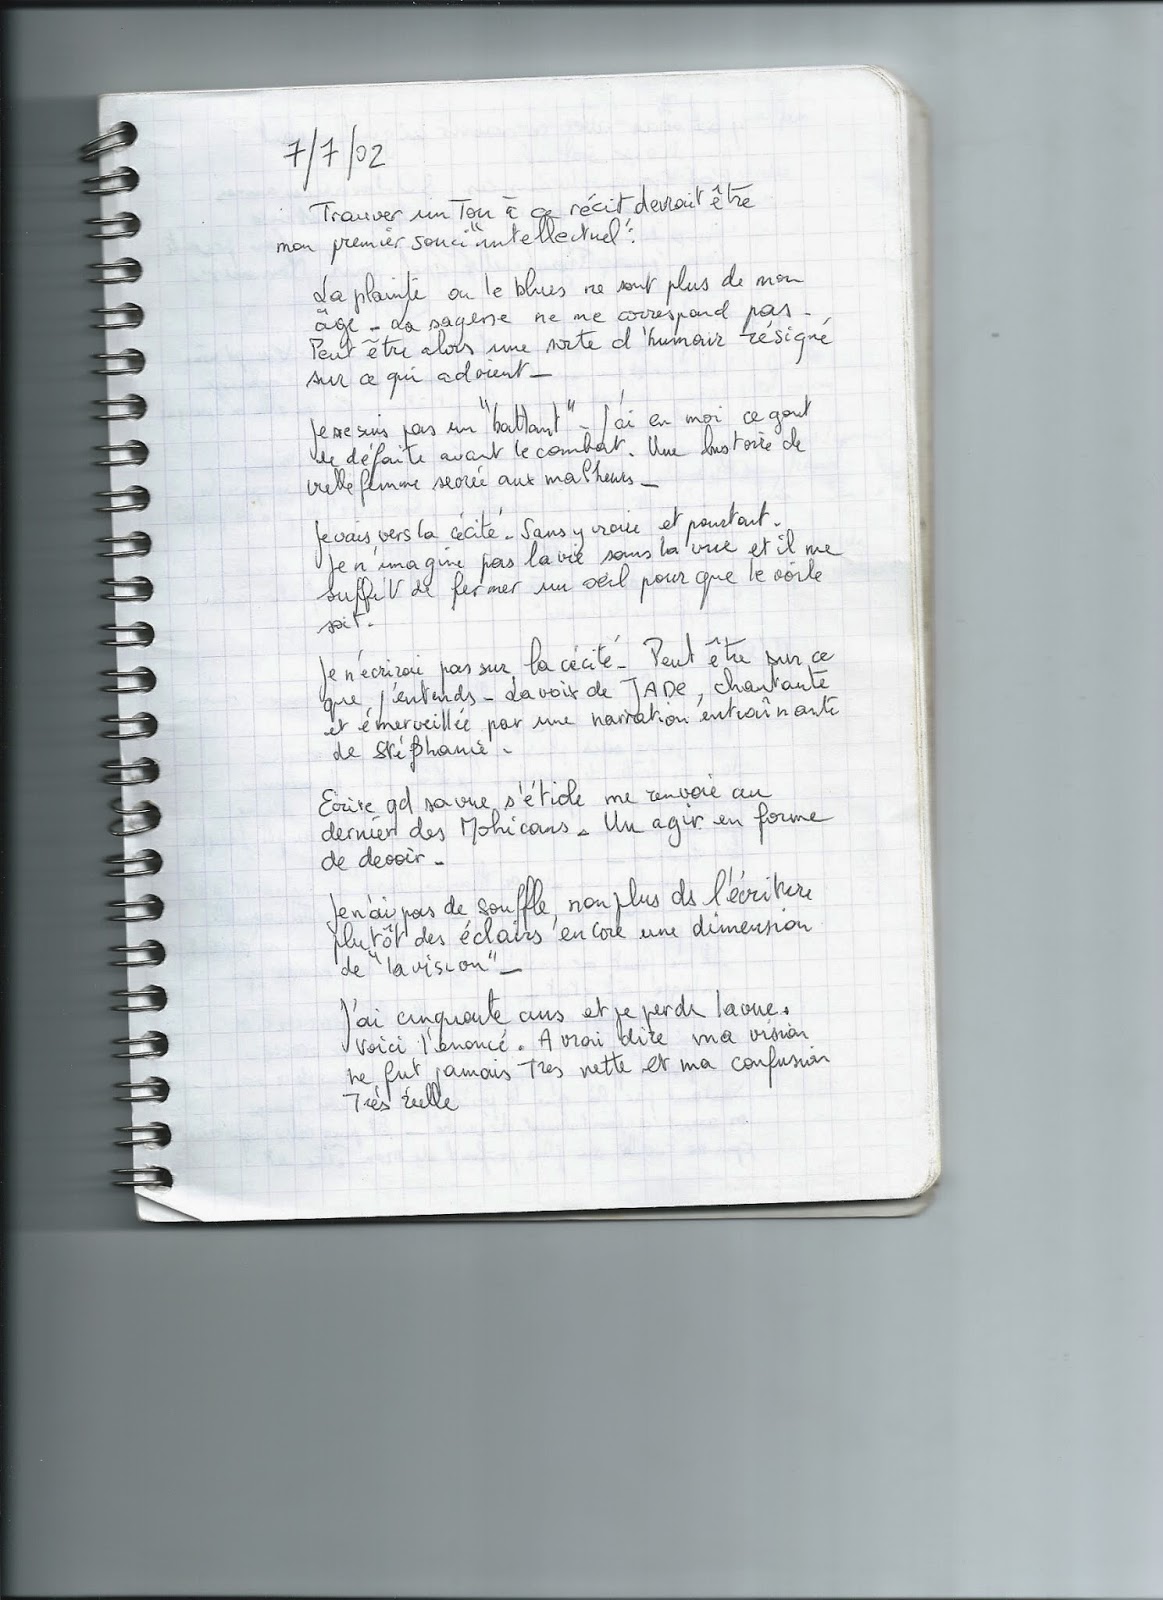 7/7/02
Trouver un Ton à ce récit devrait être
mon premier souci "intellectuel".
La plainte ou le blues ne sont plus de mon
âge - La sagesse ne me correspond pas -
Peut être alors une sorte d'humour résigné
sur ce qui advient -
Je ne suis pas un "battant" - J'ai en moi ce gout
de défaite avant le combat. Une histoire de
vieille femme aux malheurs -
Je vais vers la cécité - Sans y croire et pourtant.
Je n'imagine pas la vie sans la vue et il me
suffit de fermer un œil pour que le voile
soit.
Je n'écrirai pas sur la cécité - Peut être sur ce
que j'entends - La voix de JADE, chantante
et émerveillée par une narration entrainante
de Stéphanie -
Ecrire qd sa vue s'étiole me renvoie au
dernier des Mohicans. Un agir en forme
de devoir -
Je n'ai pas de souffle, non plus ds l'écriture
plutôt des éclairs encore une dimension
de "la vision" -
J'ai cinquante ans et je perds la vue.
Voici l'énoncé. A vrai dire ma vision
ne fut jamais Très nette et ma confusion
Très réelle